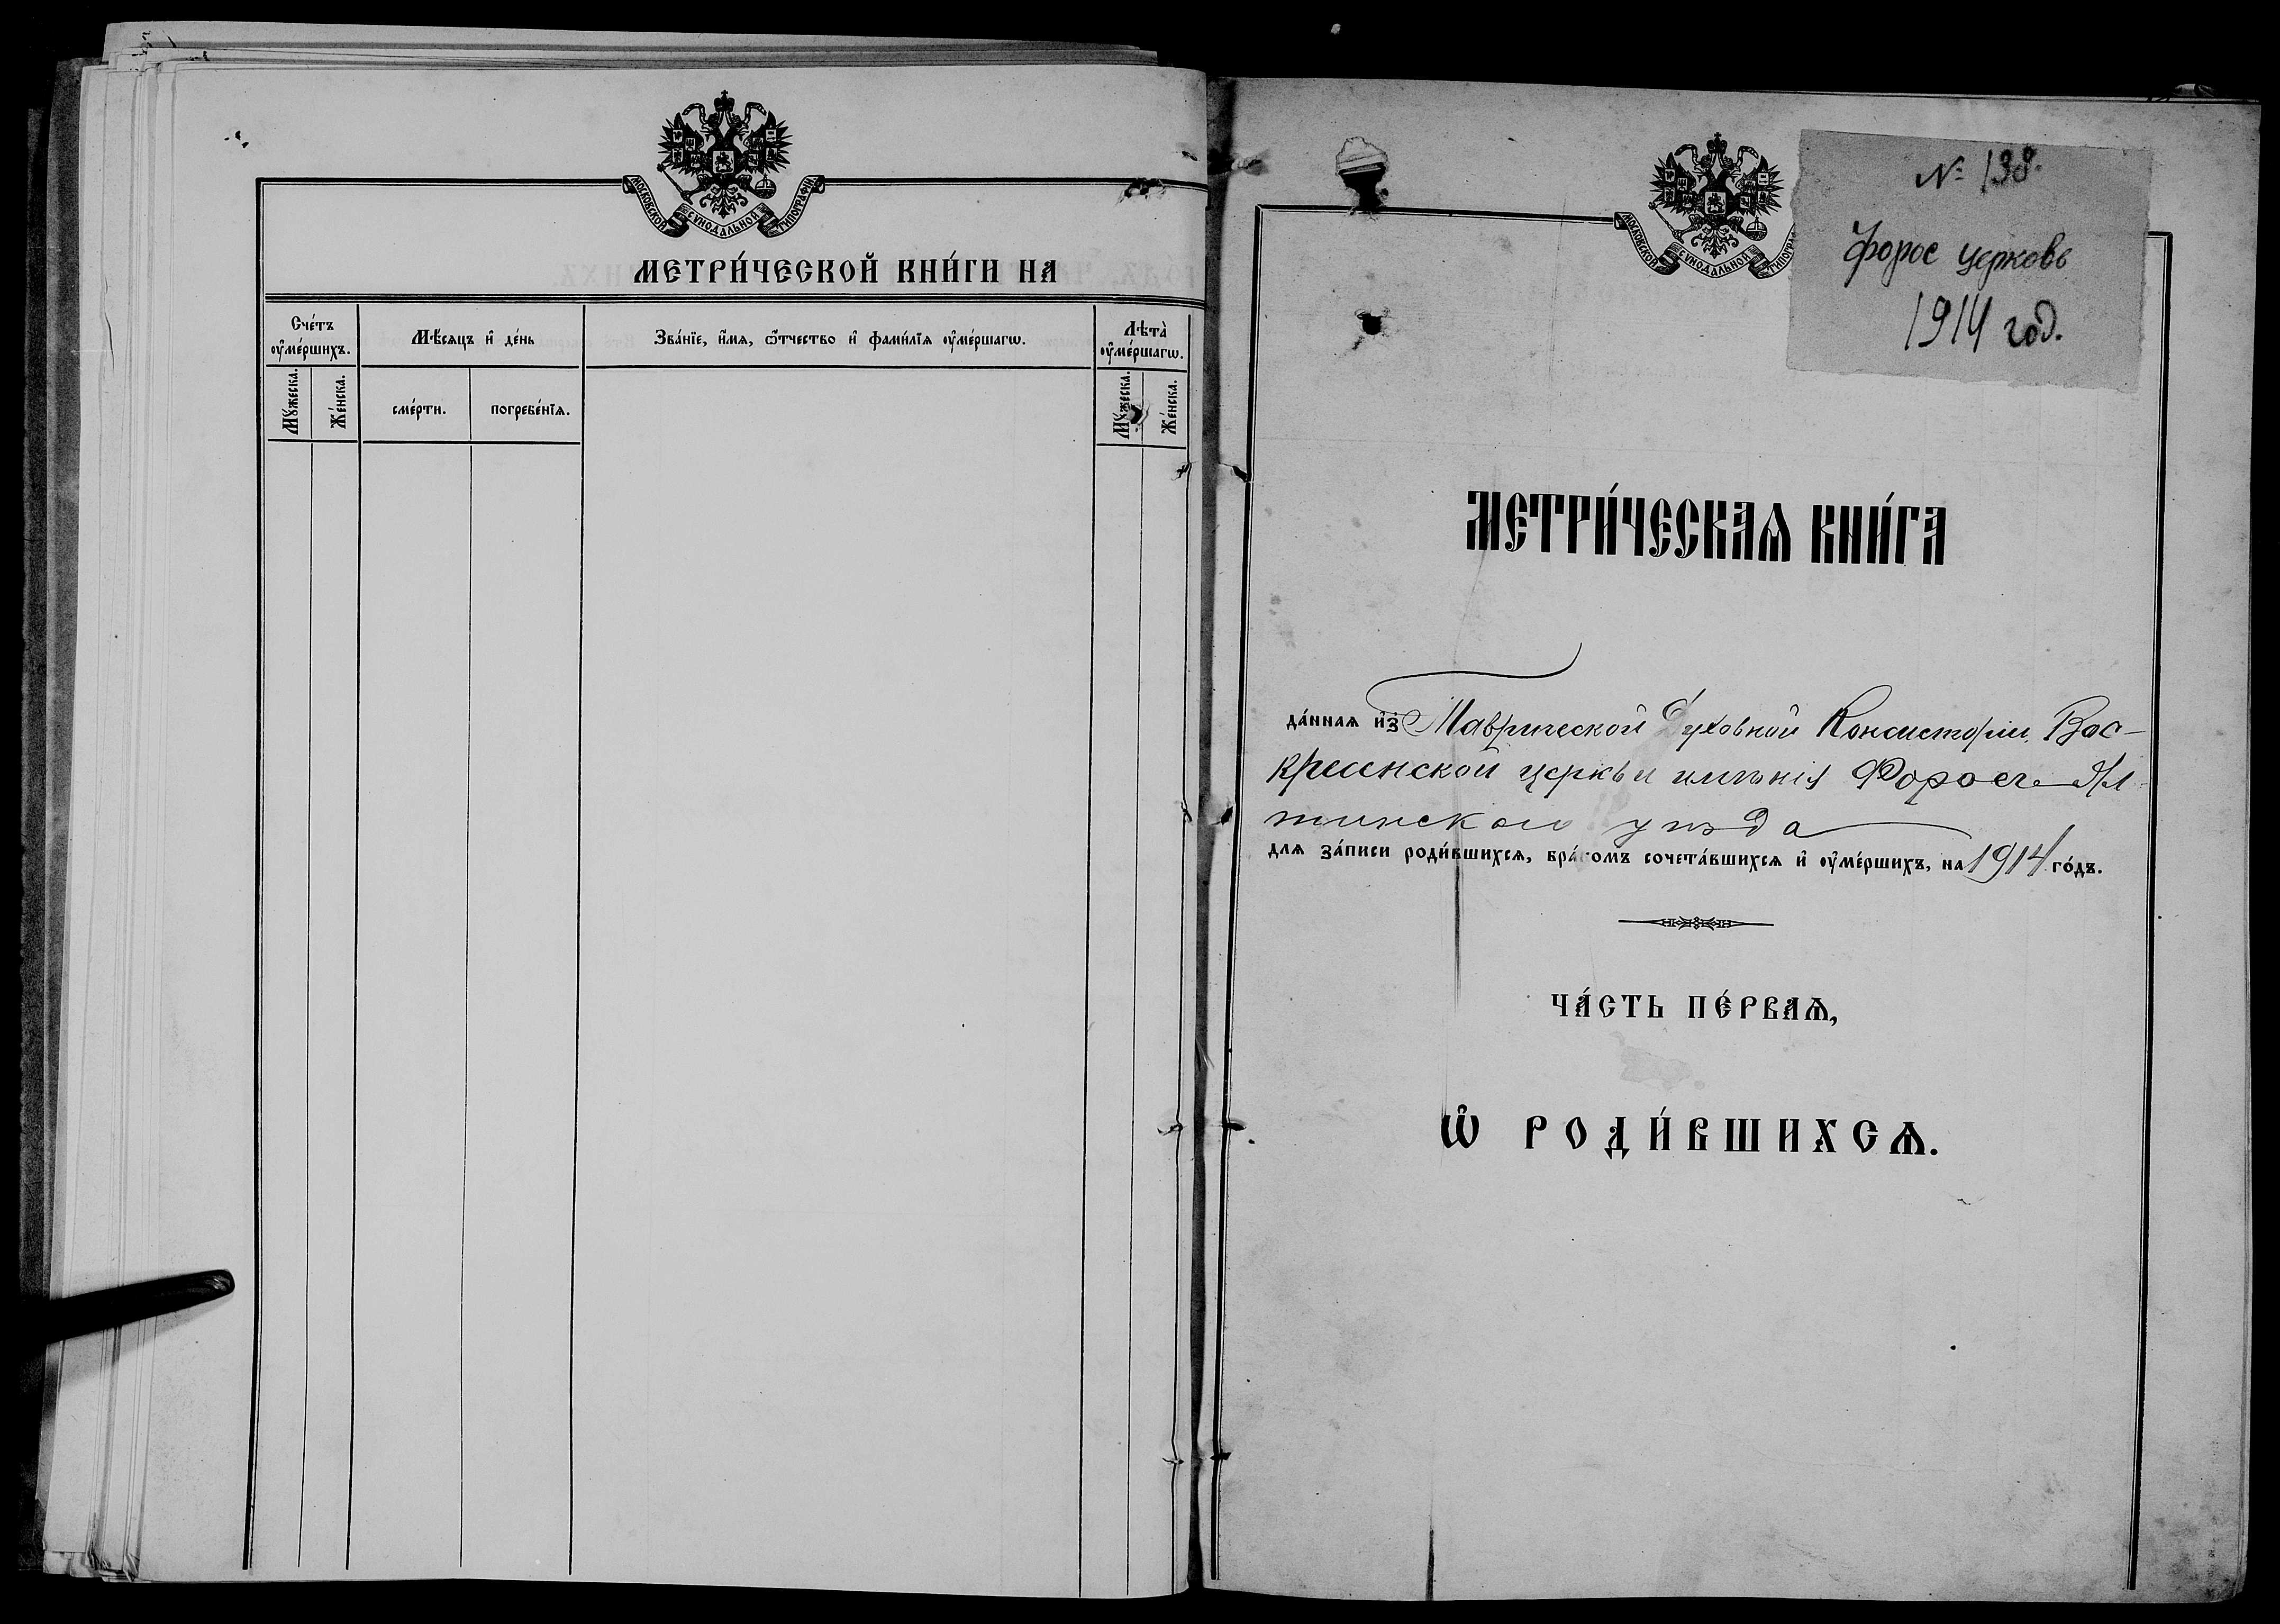 МОСКОВСКОЙ СѴНОДАЛЬНОЙ ТИПОГРАФІИ.
МЕТРИ́ЧЕСКОЙ КНИ́ГИ НА
Сче́тъ ᲂу҆ме́ршихъ.
Мѣ́сяцъ и҆ де́нь
Зва́нїе, и҆́мѧ, ѻ҆́тчество и҆ фами́лїѧ ᲂу҆ме́ршагѡ.
Лѣта̀ ᲂу҆ме́ршагѡ.
Мꙋ́жеска.
Же́нска.
сме́рти.
погребе́нїѧ.
Мꙋ́жеска.
Же́нска.
МОСКОВСКОЙ СѴНОДАЛЬНОЙ ТИПОГРА
№ 138.
Форос церковь
1914 год.
МЕТРИ́ЧЕСКАѦ КНИ́ГА
да́ннаѧ и҆з̾ Таврической Духовной Консисторіи Вос-
кресенской церкви имѣнія Форосъ Ял-
тинскаго уѣзда
длѧ за́писи роди́вшихсѧ, бра́комъ сочета́вшихсѧ и҆ ᲂу҆ме́ршихъ, на 1914 го́дъ.
ЧА́СТЬ ПЕ́РВАѦ,
Ѡ҆ РОДИ́ВШИХСѦ.